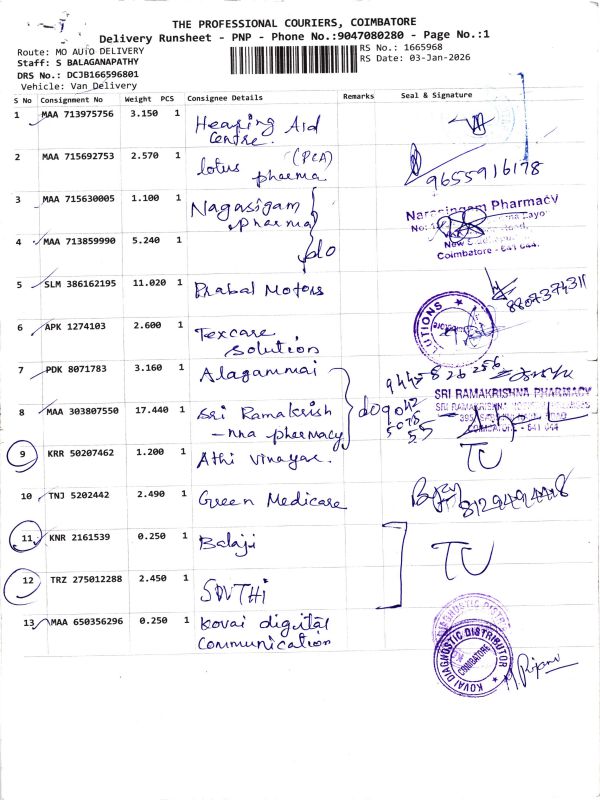 THE PROFESSIONAL COURIERS, COIMBATORE
Delivery Runsheet - PNP - Phone No.:9047080280 - Page No.:1
Route: MO AUTO DELIVERY
RS No.: 1665968
Staff: S BALAGANAPATHY
RS Date: 03-Jan-2026
DRS No.: DCJB166596801
Vehicle: Van Delivery
S No Consignment No Weight PCS Consignee Details Remarks Seal & Signature
1 MAA 713975756 3.150 1 Hearing Aid
Centre.
2 MAA 715692753 2.570 1 lotus (PCA)
pharma
9655916178
3 MAA 715630005 1.100 1 Nagasigam
pharma
Narasingam Pharmacy
4 MAA 713859990 5.240 1 do
Coimbatore - 641 044.
5 SLM 386162195 11.020 1 Prabal Motors
8807374311
6 APK 1274103 2.600 1 Texcare
Solution
7 PDK 8071783 3.160 1 Alagammai
9445826256
8 MAA 303807550 17.440 1 Sri Ramakrish
-nna pharmacy
SRI RAMAKRISHNA PHARMACY
9 KRR 50207462 1.200 1 Athi Vinayae.
TU
10 TNJ 5202442 2.490 1 Green Medicare
11 KNR 2161539 0.250 1 Balaji
TU
12 TRZ 275012288 2.450 1 SVVTHi
13 MAA 650356296 0.250 1 Kovai digital
Communication
KOVAI DIAGNOSTIC DISTRIBUTOR
COIMBATORE